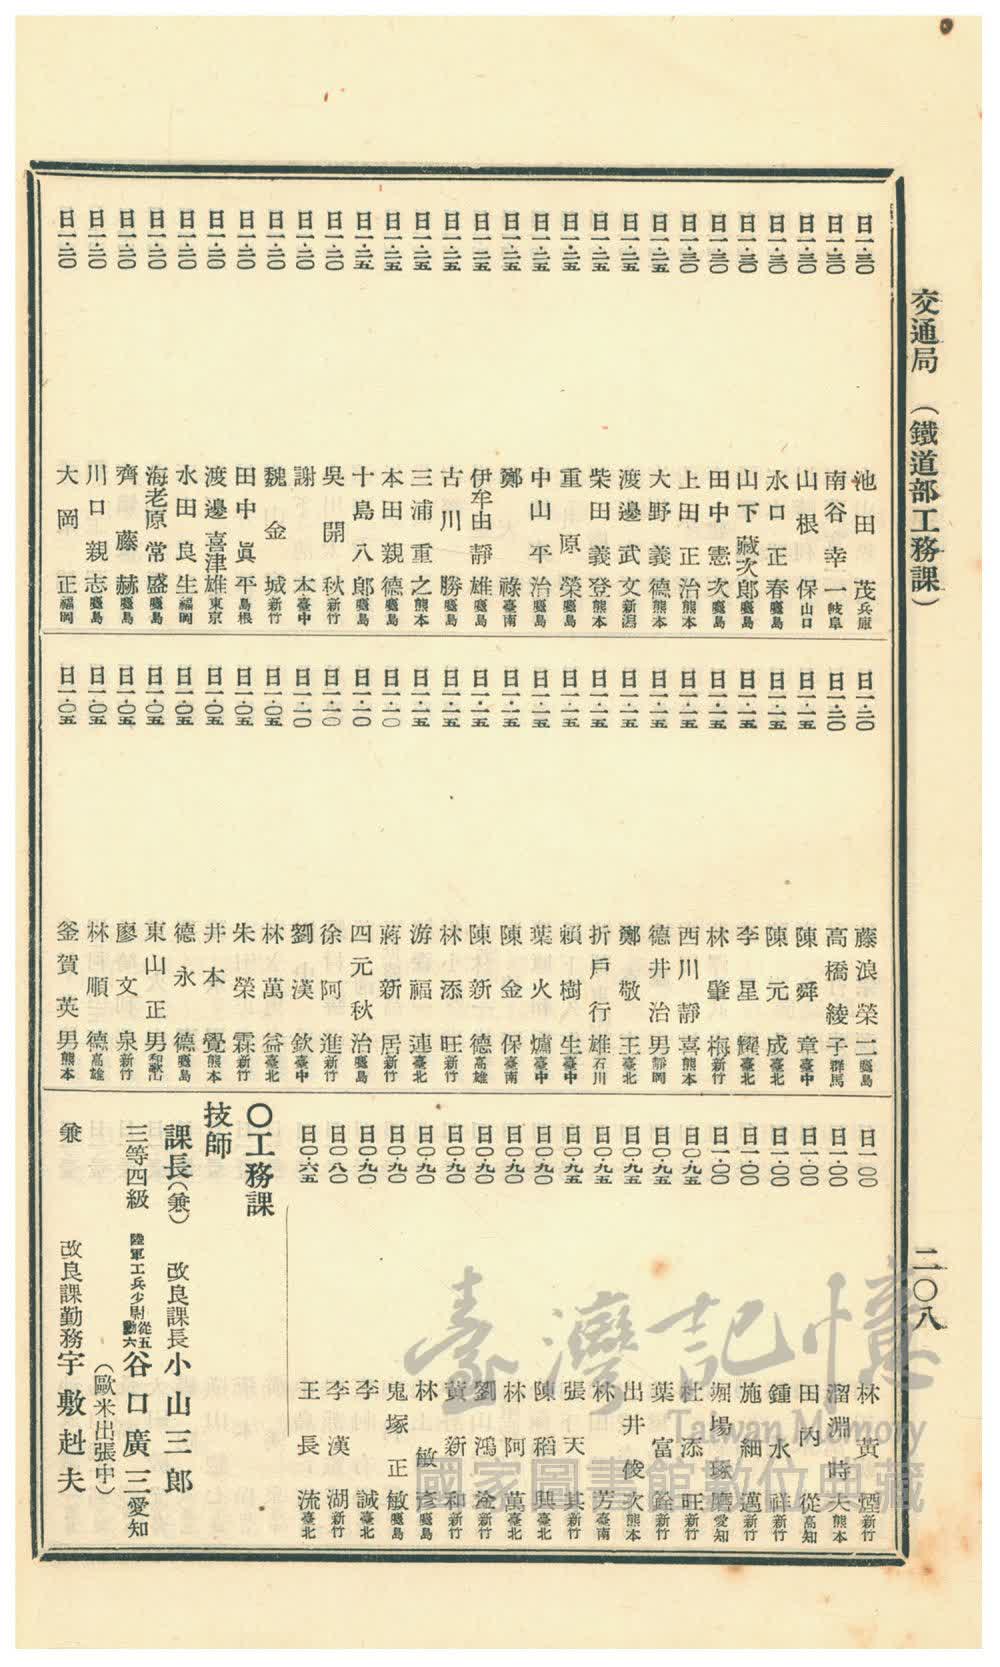 交通局 (鐵道部工務課)
二〇八
日一・三〇 池田茂 兵庫
日一・三〇 南谷幸一 岐阜
日一・三〇 山根保 山口
日一・三〇 水口正春 鹿島
日一・三〇 山下藏次郎 鹿島
日一・三〇 田中憲次 鹿島
日一・三〇 上田正治 熊本
日一・二五 大野義德 熊本
日一・二五 渡邊武文 新潟
日一・二五 柴田義登 熊本
日一・二五 重原榮 鹿島
日一・二五 中山平治 鹿島
日一・二五 鄭祿 臺南
日一・二五 伊牟由靜雄 鹿島
日一・二五 古川勝 鹿島
日一・二五 三浦重之 熊本
日一・二五 本田親德 鹿島
日一・二五 十島八郎 鹿島
日一・二〇 吳開秋 新竹
日一・二〇 謝本 臺中
日一・二〇 魏金城 新竹
日一・二〇 田中眞平 島根
日一・二〇 渡邊喜津雄 東京
日一・二〇 水田良生 福岡
日一・二〇 海老原常盛 鹿島
日一・二〇 齊藤赫 鹿島
日一・二〇 川口親志 鹿島
日一・二〇 大岡正 福岡
日一・二〇 藤浪榮二 鹿島
日一・二〇 高橋綾子 群馬
日一・一五 陳舜章 臺中
日一・一五 陳元成 臺北
日一・一五 李星耀 臺北
日一・一五 林肇梅 新竹
日一・一五 西川靜喜 熊本
日一・一五 德井治男 靜岡
日一・一五 鄭敬王 臺北
日一・一五 折戶行雄 石川
日一・一五 賴樹生 臺中
日一・一五 葉火爐 臺中
日一・一五 陳金保 臺南
日一・一五 陳新德 高雄
日一・一五 林添旺 新竹
日一・一五 游福連 臺北
日一・一〇 蔣新居 新竹
日一・一〇 四元秋治 鹿島
日一・一〇 徐阿進 新竹
日一・一〇 劉漢欽 臺中
日一・〇五 林萬益 臺北
日一・〇五 朱榮霖 新竹
日一・〇五 井本覺 熊本
日一・〇五 德永德 鹿島
日一・〇五 東山正男 和歌山
日一・〇五 廖文泉 新竹
日一・〇五 林順德 高雄
日一・〇五 釜賀英男 熊本
日一・〇〇 林黃煙 新竹
日一・〇〇 溜淵時夫 熊本
日一・〇〇 田內從 高知
日一・〇〇 鍾水祥 新竹
日一・〇〇 施細邁 新竹
日一・〇〇 堀場琢磨 愛知
日〇・九五 杜添旺 新竹
日〇・九五 葉富銓 新竹
日〇・九五 出井俊次 熊本
日〇・九五 林芳 臺南
日〇・九五 張天其 新竹
日〇・九〇 陳稻興 臺北
日〇・九〇 林阿萬 臺北
日〇・九〇 劉鴻淦 新竹
日〇・九〇 黃新和 新竹
日〇・九〇 林敏彥 鹿島
日〇・九〇 鬼塚正敏 鹿島
日〇・九〇 李誠 臺北
日〇・八〇 李漢湖 新竹
日〇・六五 王長流 臺北
〇工務課
技師
課長(兼) 改良課長 小山三郎
三等四級 陸軍工兵少尉 從五 勳六 谷口廣三 愛知
(歐米出張中)
兼 改良課勤務 宇敷赳夫
臺灣記憶
Taiwan Memory
國家圖書館數位典藏